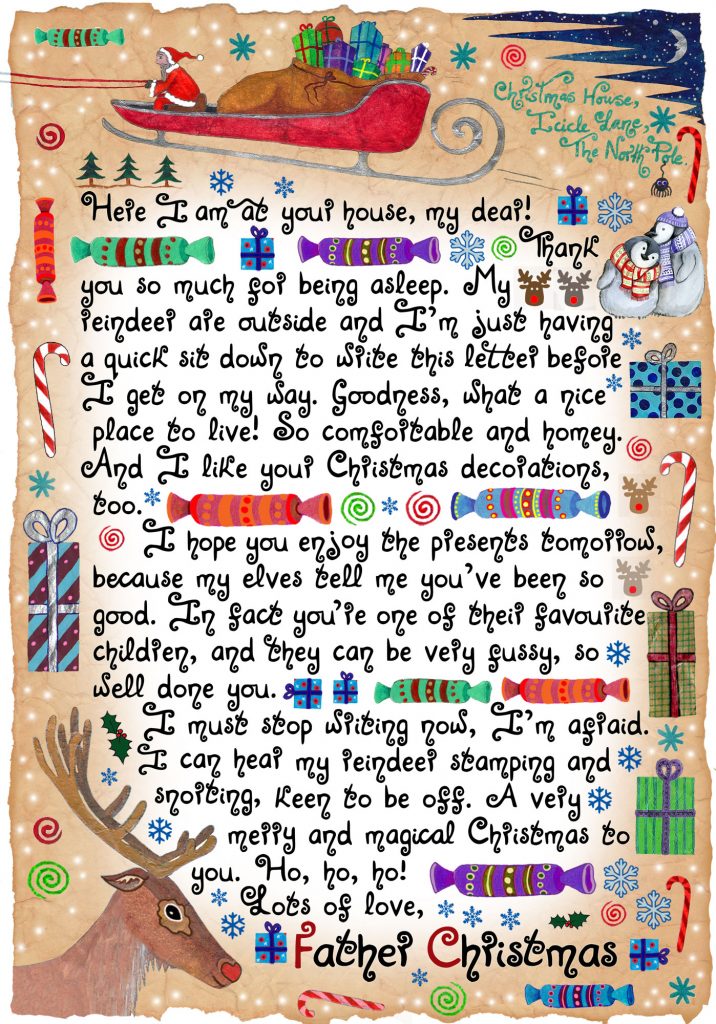 Christmas House,
Icicle Lane,
The North Pole.
Here I am at your house, my dear!
Thank
you so much for being asleep. My
reindeer are outside and I'm just having
a quick sit down to write this letter before
I get on my way. Goodness, what a nice
place to live! So comfortable and homey.
And I like your Christmas decorations,
too.
I hope you enjoy the presents tomorrow,
because my elves tell me you've been so
good. In fact you're one of their favourite
children, and they can be very fussy, so
well done you.
I must stop writing now, I'm afraid.
I can hear my reindeer stamping and
snorting, keen to be off. A very
merry and magical Christmas to
you. Ho, ho, ho!
Lots of love,
Father Christmas